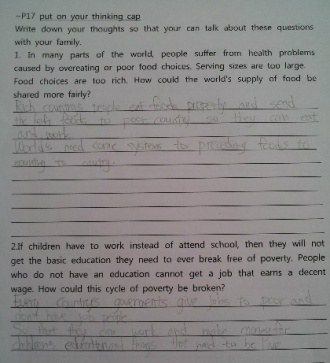 ~P17 put on your thinking cap
Write down your thoughts so that your can talk about these questions
with your family.
1. In many parts of the world, people suffer from health problems
caused by overeating or poor food choices. Serving sizes are too large.
Food choices are too rich. How could the world's supply of food be
shared more fairly?
Rich countries people eat foods properly and send
the left foods to poor country so they can eat
and work
World's need some systems to providing foods to
country to
2.If children have to work instead of attend school, then they will not
get the basic education they need to ever break free of poverty. People
who do not have an education cannot get a job that earns a decent
wage. How could this cycle of poverty be broken?
Every countries goverments give jobs to poor and
don't have job people
So that they can work and make money for
children's educational things that need to be